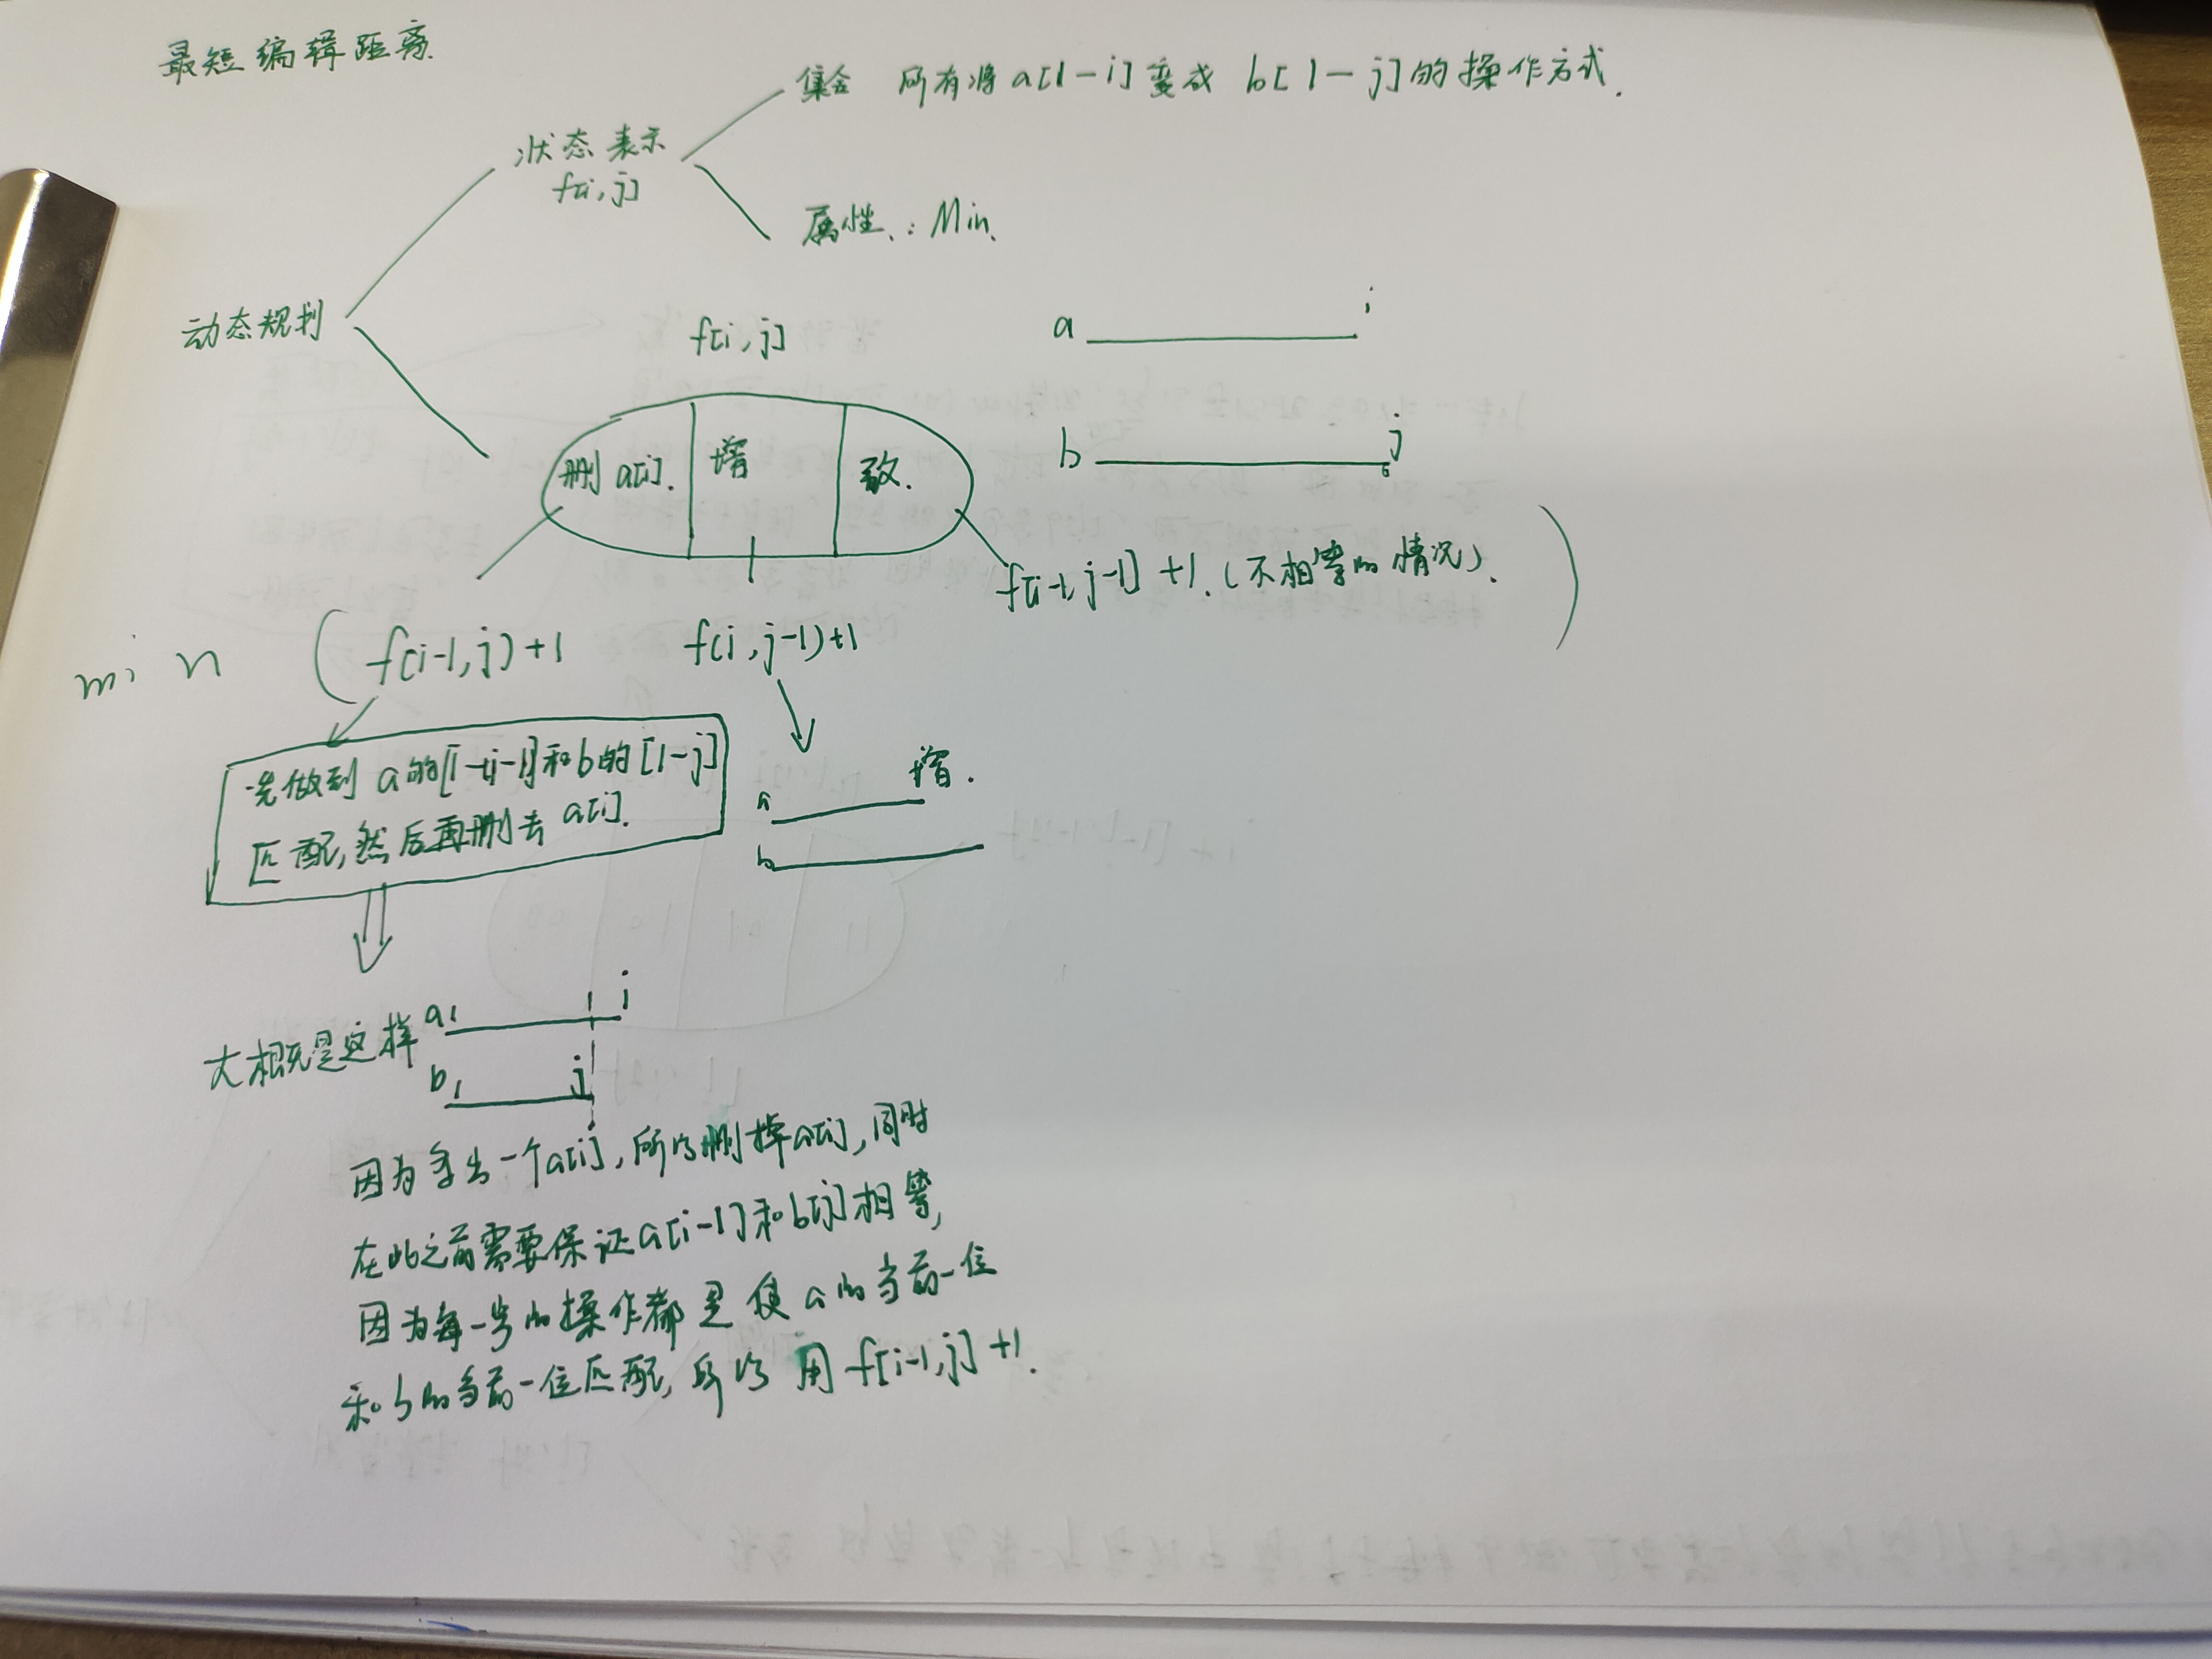 最短编辑距离.
集合 所有将a[1-i]变成 b[1-j]的操作方式.
状态表示
f[i,j]
属性.:Min.
动态规划
f[i,j]
a i
b j
删a[i]. 增 改.
f[i-1,j-1]+1.(不相等的情况).
min ( f[i-1,j)+1 f(i,j-1)+1 )
先做到a的[1-i-1]和b的[1-j]
匹配,然后再删去a[i].
增.
a
b
大概是这样
a 1 i
b 1 j
因为多出一个a[i],所以删掉a[i],同时
在此之前需要保证a[i-1]和b[j]相等,
因为每一步的操作都是使a的当前一位
和b的当前一位匹配,所以用f[i-1,j]+1.